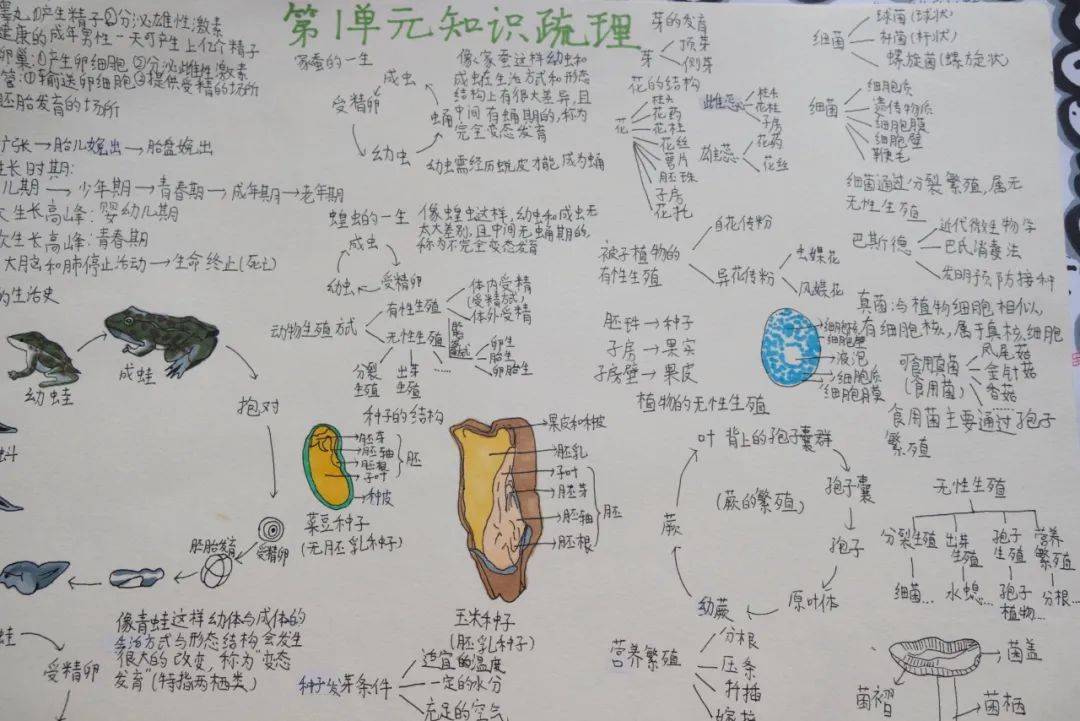 第1单元知识疏理
睾丸①产生精子②分泌雄性激素
健康的成年男性一天可产生上亿个精子
卵巢:①产生卵细胞②分泌雌性激素
管:①输送卵细胞②提供受精的场所
胚胎发育的场所
扩张→胎儿娩出→胎盘娩出
生长时期:
儿期→少年期→青春期→成年期→老年期
生长高峰:婴幼儿期
次生长高峰:青春期
大脑和肺停止活动→生命终止(死亡)
的生活史
幼蛙
成蛙
抱对
受精卵
胚胎发育
蚪
蛙
受精卵
像青蛙这样幼体与成体的
生活方式与形态结构会发生
很大的改变,称为"变态
发育"(特指两栖类)
家蚕的一生
成虫
受精卵
蛹
幼虫
像家蚕这样幼虫和
成虫在生活方式和形态
结构上有很大差异,且
中间有蛹期的,称为
完全变态发育
幼虫需经历蜕皮才能成为蛹
蝗虫的一生
成虫
幼虫
受精卵
像蝗虫这样,幼虫和成虫无
太大差别,且中间无蛹期的,
称为不完全变态发育
动物生殖方式
有性生殖
体内受精
(受精方式)
体外受精
无性生殖
卵生
胎生
卵胎生
分裂
生殖
出芽
生殖
……
种子的结构
胚芽
胚轴
胚根
子叶
胚
种皮
菜豆种子
(无胚乳种子)
果皮和种皮
胚乳
子叶
胚芽
胚轴
胚根
胚
玉米种子
(胚乳种子)
种子发芽条件
适宜的温度
一定的水分
充足的空气
芽的发育
芽
顶芽
侧芽
花的结构
花
柱头
花药
花柱
花丝
萼片
胚珠
子房
花托
雌蕊
柱头
花柱
子房
雄蕊
花药
花丝
被子植物的
有性生殖
自花传粉
异花传粉
虫媒花
风媒花
胚珠→种子
子房→果实
子房壁→果皮
细胞核
细胞壁
液泡
细胞质
细胞膜
植物的无性生殖
叶背上的孢子囊群
孢子囊
孢子
原叶体
幼蕨
蕨
(蕨的繁殖)
营养繁殖
分根
压条
扦插
嫁接
细菌
球菌(球状)
杆菌(杆状)
螺旋菌(螺旋状)
细菌
细胞质
遗传物质
细胞膜
细胞壁
鞭毛
细菌通过分裂繁殖,属无
无性生殖
巴斯德
近代微生物学
巴氏消毒法
发明预防接种
真菌:与植物细胞相似,
有细胞核,属于真核细胞
可食用真菌
(食用菌)
凤尾菇
金针菇
香菇
食用菌主要通过孢子
繁殖
无性生殖
分裂生殖
出芽
生殖
孢子
生殖
营养
繁殖
细菌…
水螅…
孢子
植物…
分根…
菌盖
菌褶
菌柄